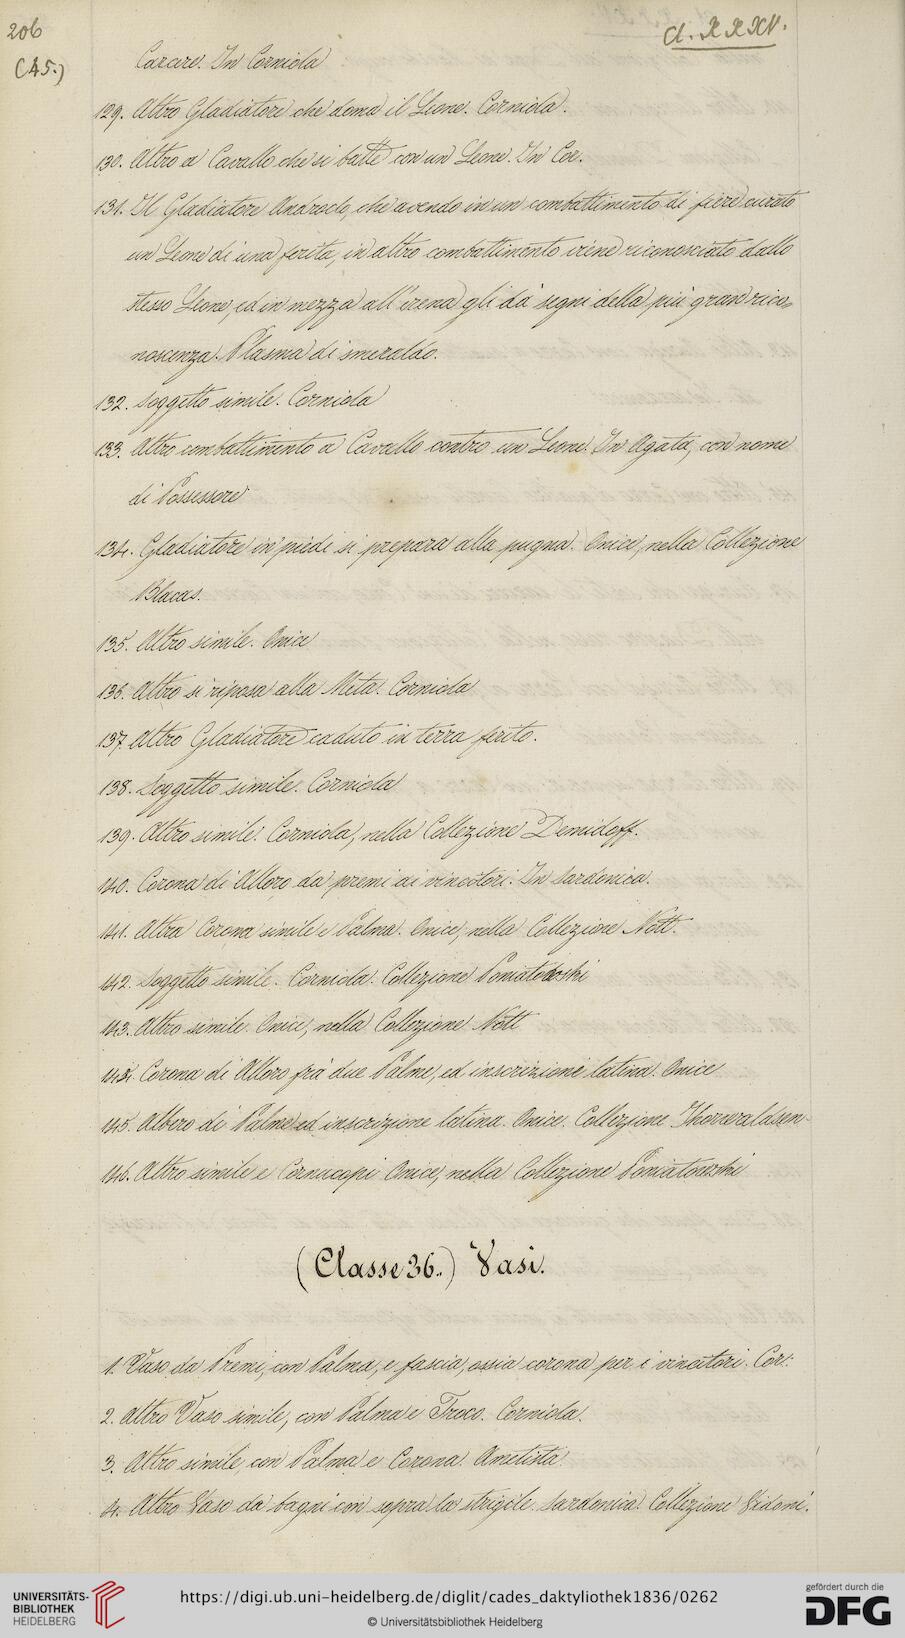 206
(45.)
Cl. XXXV.
Carcere. In Corniola
129. Altro Gladiatore che doma il Leone. Corniola.
130. Altro a Cavallo che si batte con un Leone. In Cor.
131. Il Gladiatore Androclo, che avendo in un combattimento di fiere curato
un Leone di una ferita, in altro combattimento viene riconosciuto dallo
stesso Leone, ed in mezza all'arena gli dà segni della più gran rico=
noscenza. Plasma di smeraldo.
132. Soggetto simile. Corniola
133. Altro combattimento a Cavallo contro un Leone. In Agata, con nome
di Possessore
134. Gladiatore in piedi si prepara alla pugna. Onice, nella Collezione
Blacas.
135. Altro simile. Onice
136. Altro si riposa alla Meta. Corniola
137. Altro Gladiatore caduto in terra ferito.
138. Soggetto simile. Corniola
139. Altro simile. Corniola, nella Collezione Demidoff.
140. Corona di Alloro da premi ai vincitori. In Sardonica.
141. Altra Corona simile e Palma. Onice, nella Collezione Nott.
142. Soggetto simile. Corniola. Collezione Poniatowski
143. Altro simile. Onice, nella Collezione Nott
144. Corona di Alloro frà due Palme, ed inscrizione latina. Onice
145. Albero di Palme ed inscrizione latina. Onice. Collezione Thorwaldsen
146. Altro simile e Cornucopi Onice, nella Collezione Poniatowski
(Classe 36.) Vasi.
1. Vaso da Premi, con Palma, e fascia, ossia corona per i vincitori. Cor:
2. Altro Vaso simile, con Palma e Troco. Corniola.
3. Altro simile, con Palma e Corona. Ametista.
4. Altro Vaso da bagni con sopra lo strigile. Sardonica. Collezione Vidoni.
UNIVERSITÄTS-
BIBLIOTHEK
HEIDELBERG
https://digi.ub.uni-heidelberg.de/diglit/cades_daktyliothek1836/0262
© Universitätsbibliothek Heidelberg
gefördert durch die
DFG